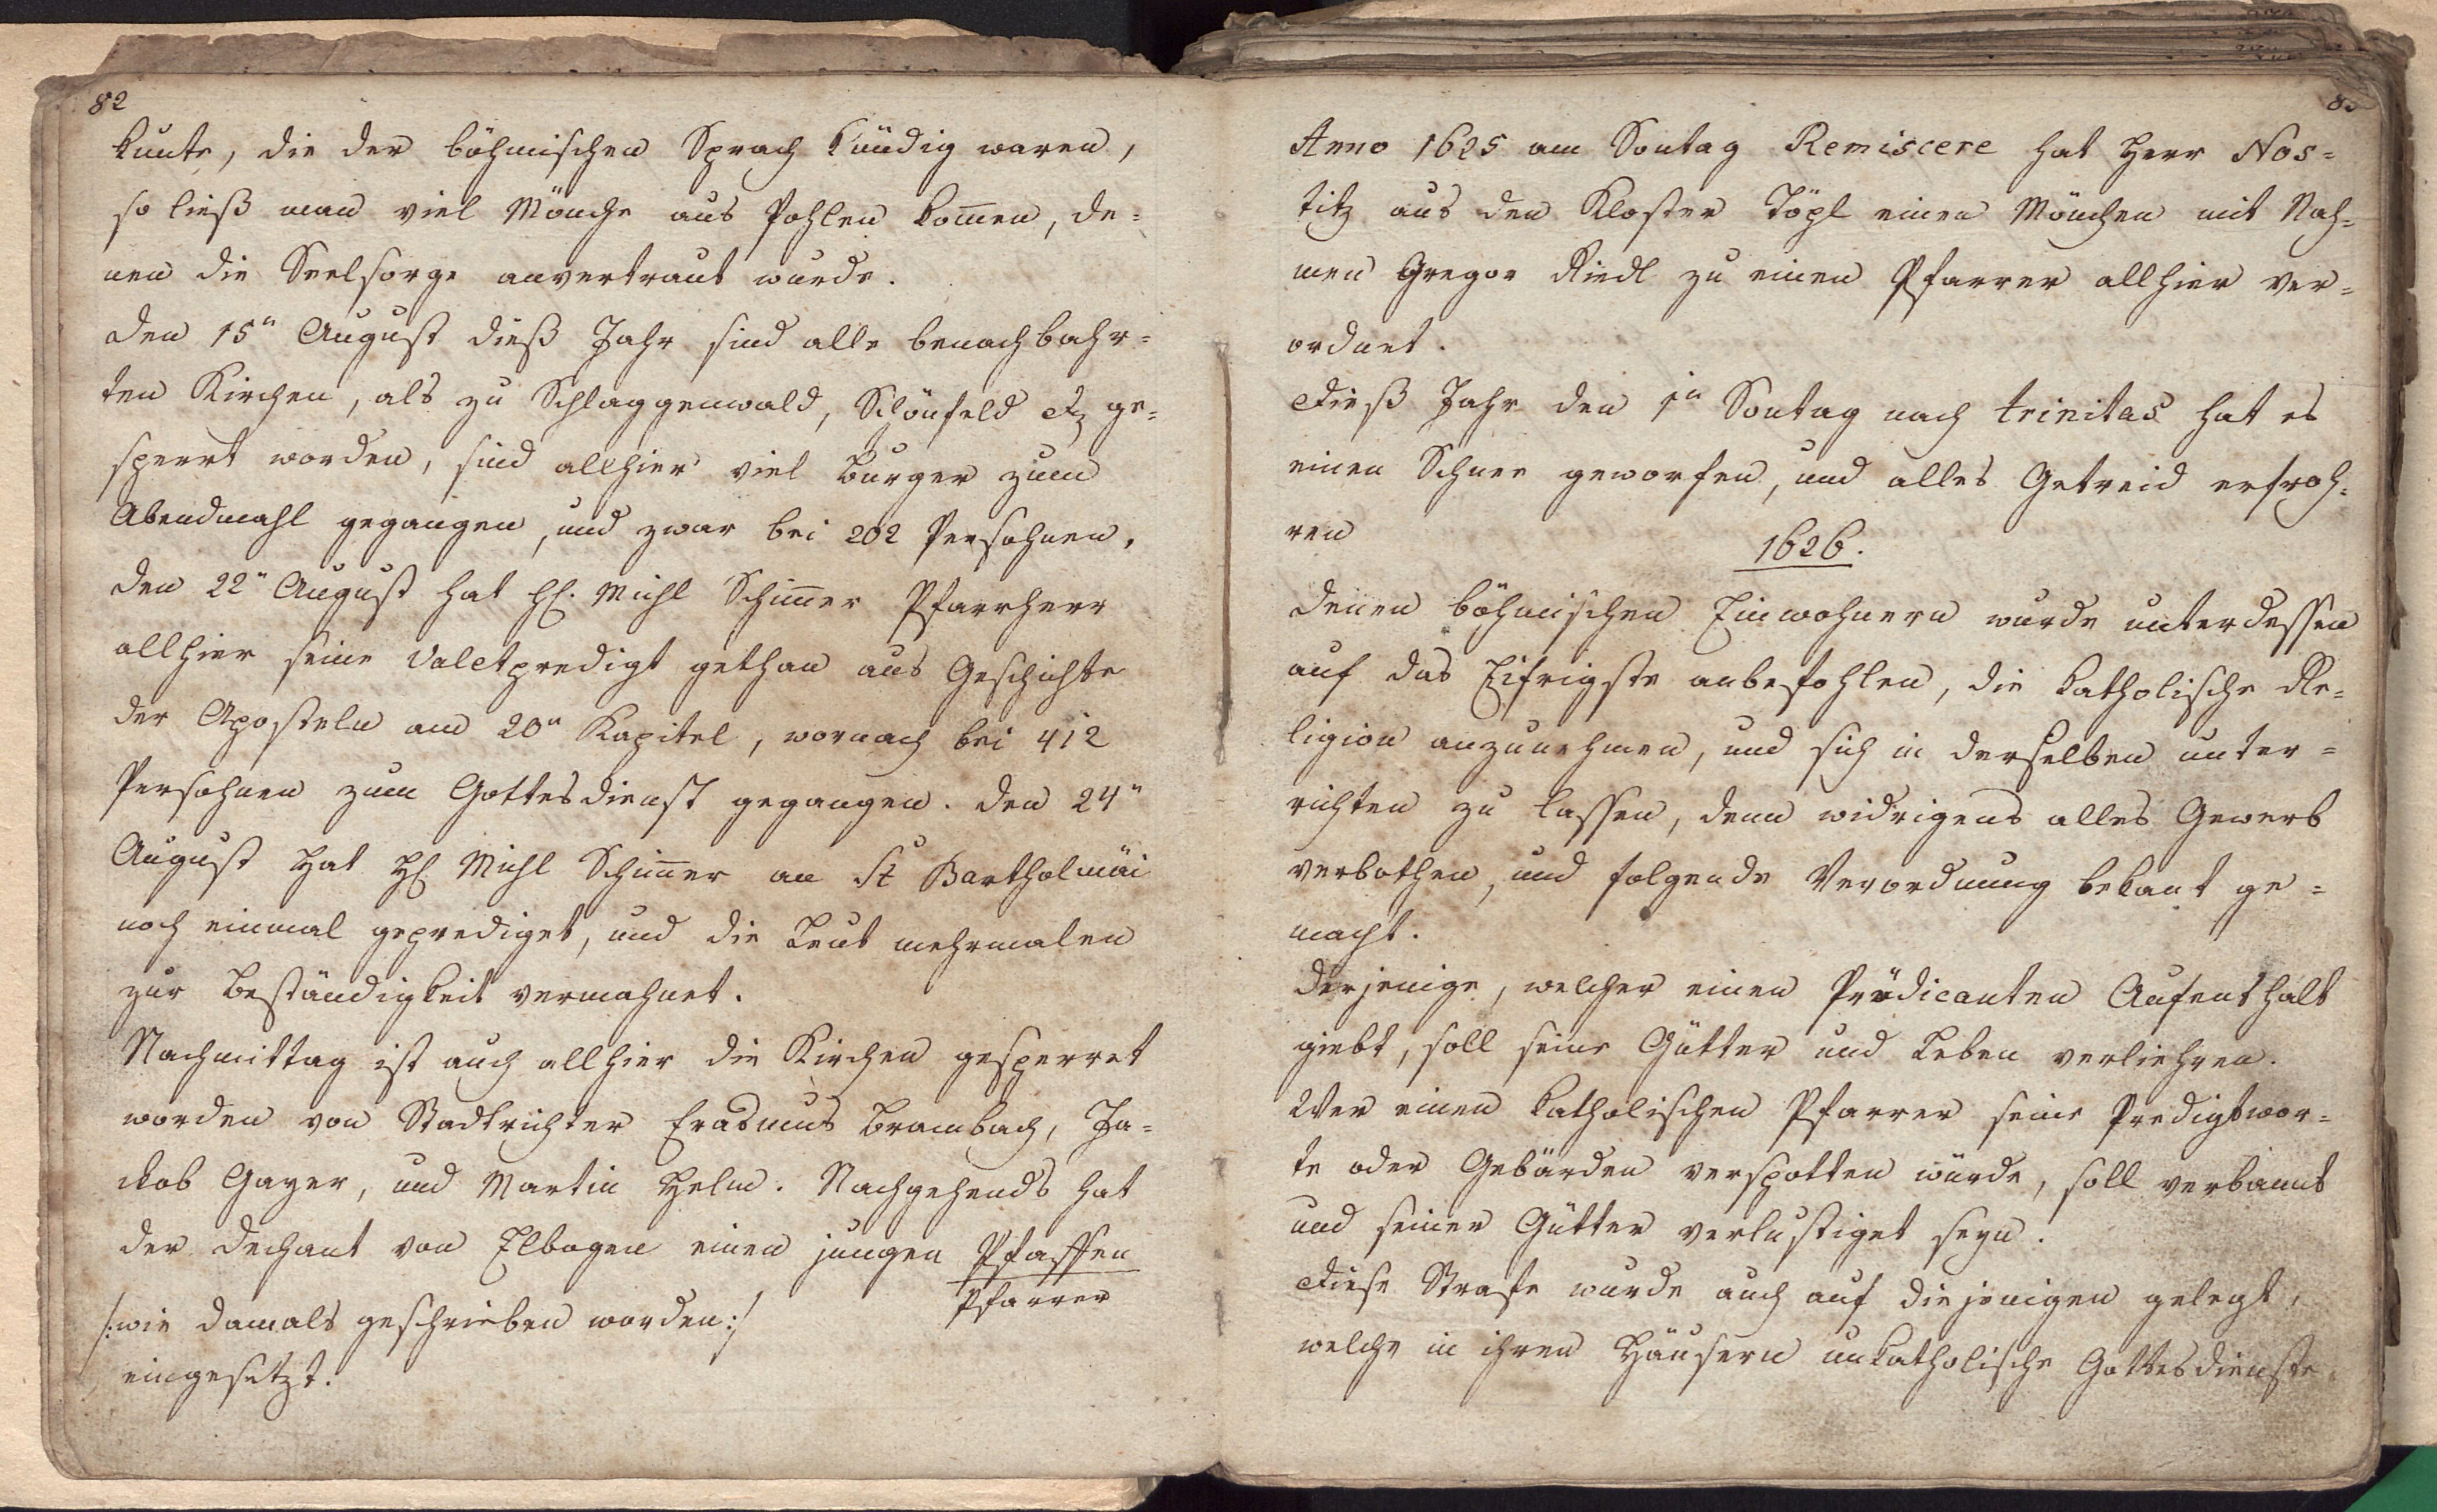 82
kunte, die der böhmischen Sprach kündig waren,
so ließ man viel Mönche aus Pohlen kom̄en, de=
nen die Seelsorge anvertraut wurde.
den 15" August dieß Jahr sind alle benachbahr=
ten Kirchen, als zu Schlaggenwald, Schönfeld etz ge=
sperrt worden, sind allhier viel Burger zum
Abendmahl gegangen, und zwar bei 202 Persohnen.
den 22" August hat H. Michl Schim̄er Pfarrherr
allhier seine Valetpredigt gethan aus Geschichte
der Aposteln am 20" Kapitel, wornach bei 412
Persohnen zum Gottesdienst gegangen. den 24"
August Hat H Michl Schim̄er an St Bartholmäi
noch einmal geprediget, und die Leut mehrmalen
zur Beständigkeit vermahnet.
Nachmittag ist auch allhier die Kirchen gesperret
worden von Stadtrichter Erasmus Brambach, Ja=
ckob Gayer, und Martin Helm. Nachgehends hat
der Dechant von Elbogen einen jungen Pfaffen
Pfarrer
/:wie damals geschrieben worden:/
eingesetzt.
83
Anno 1625 am Sontag Remiscere hat Herr Nos=
titz aus den Kloster Töpl einen Mönchen mit Nah=
men Gregor Riedl zu einen Pfarrer allhier ver=
ordnet.
dieß Jahr den 1" Sontag nach trinitas hat es
einen Schnee geworfen, und alles Getreid erfroh=
ren
1626.
denen böhmischen Einwohnern wurde unterdessen
auf das Eifrigste anbefohlen, die katholische Re=
ligion anzunehmen, und sich in derselben unter=
richten zu lassen, denn widrigens alles Gewerb
verbothen, und folgende Verordnung bekant ge=
macht.
derjenige, welcher einen Prädicanten Aufenthalt
giebt, soll seine Gütter und Leben verliehren.
Wer einen katholischen Pfarrer seine Predigtwor=
te oder Gebärden verspotten würde, soll verbannt
und seiner Gütter verlustiget seyn.
diese Strafe wurde auch auf diejenigen gelegt,
welche in ihren Häusern unkatholische Gottesdienste